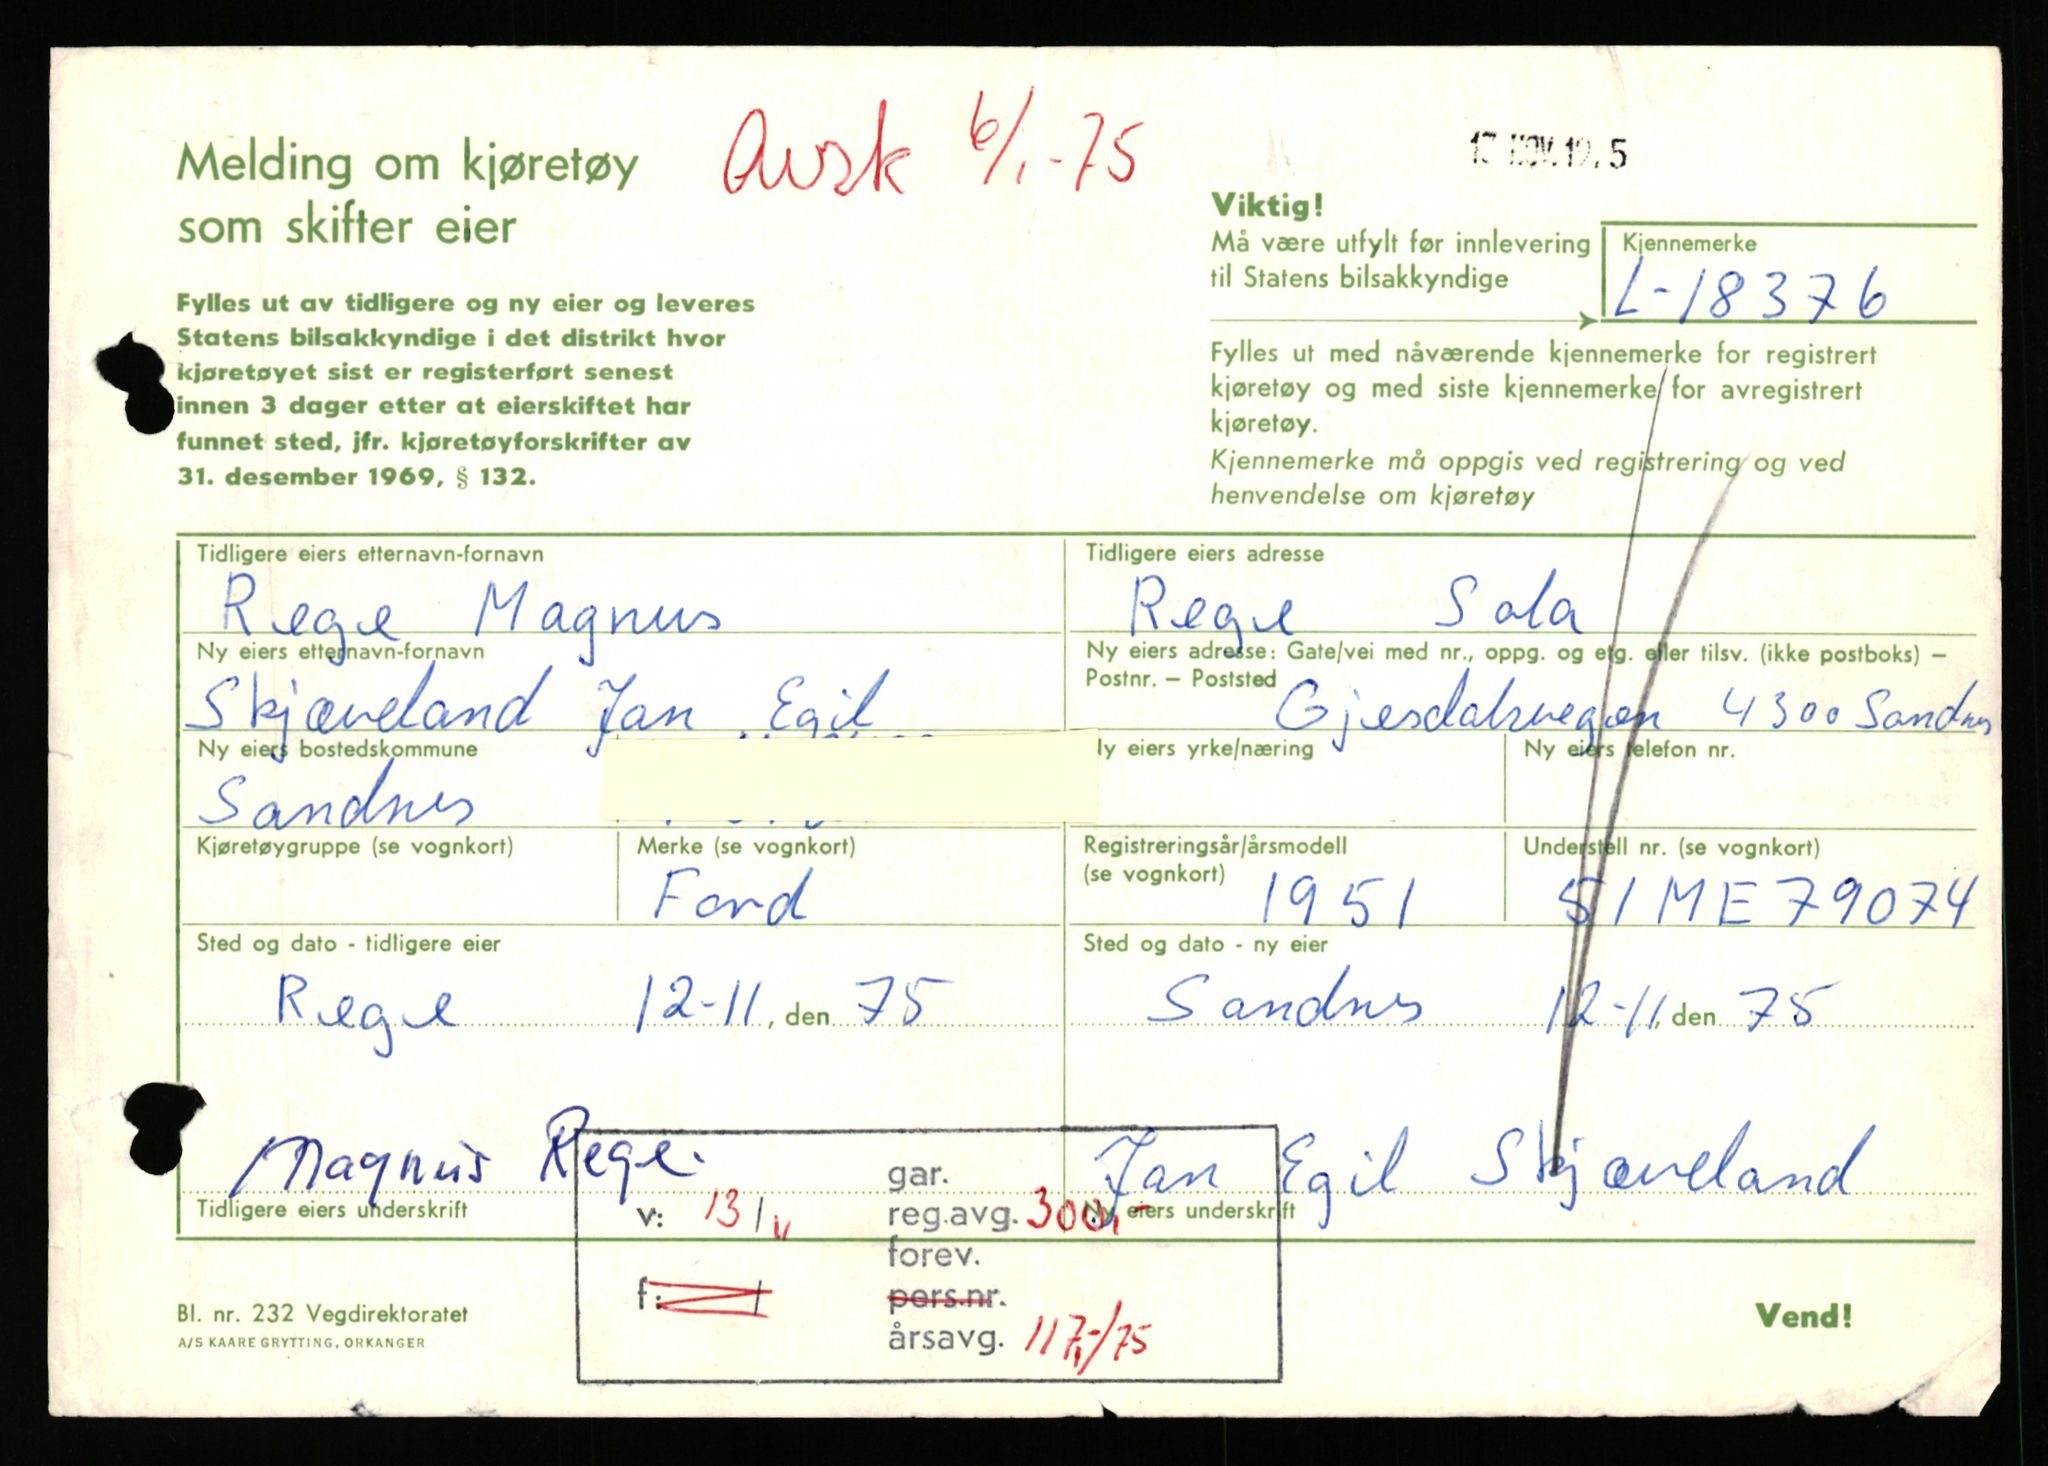 Melding om kjøretøy
som skifter eier
Avsk 6/1-75
Fylles ut av tidligere og ny eier og leveres
Statens bilsakkyndige i det distrikt hvor
kjøretøyet sist er registerført senest
innen 3 dager etter at eierskiftet har
funnet sted, jfr. kjøretøyforskrifter av
31. desember 1969, § 132.
Viktig!
Må være utfylt før innlevering
til Statens bilsakkyndige
Kjennemerke
L-18376
Fylles ut med nåværende kjennemerke for registrert
kjøretøy og med siste kjennemerke for avregistrert
kjøretøy.
Kjennemerke må oppgis ved registrering og ved
henvendelse om kjøretøy
Tidligere eiers etternavn-fornavn
Rege Magnus
Tidligere eiers adresse
Rege Sola
Ny eiers etternavn-fornavn
Skjæveland Jan Egil
Ny eiers adresse: Gate/vei med nr., oppg. og etg. eller tilsv. (ikke postboks) –
Postnr. – Poststed
Gjesdalsvegen 4300 Sandnes
Ny eiers bostedskommune
Sandnes
Ny eiers yrke/næring
Ny eiers telefon nr.
Kjøretøygruppe (se vognkort)
Merke (se vognkort)
Ford
Registreringsår/årsmodell
(se vognkort)
1951
Understell nr. (se vognkort)
51ME79074
Sted og dato - tidligere eier
Rege 12-11, den 75
Sted og dato - ny eier
Sandnes 12-11, den 75
Magnus Rege.
Tidligere eiers underskrift
Jan Egil Skjæveland
Ny eiers underskrift
v: 13/11
f:
gar.
reg.avg. 300,-
forev.
pers.nr.
årsavg. 117,-/75
Bl. nr. 232 Vegdirektoratet
A/S KAARE GRYTTING, ORKANGER
Vend!